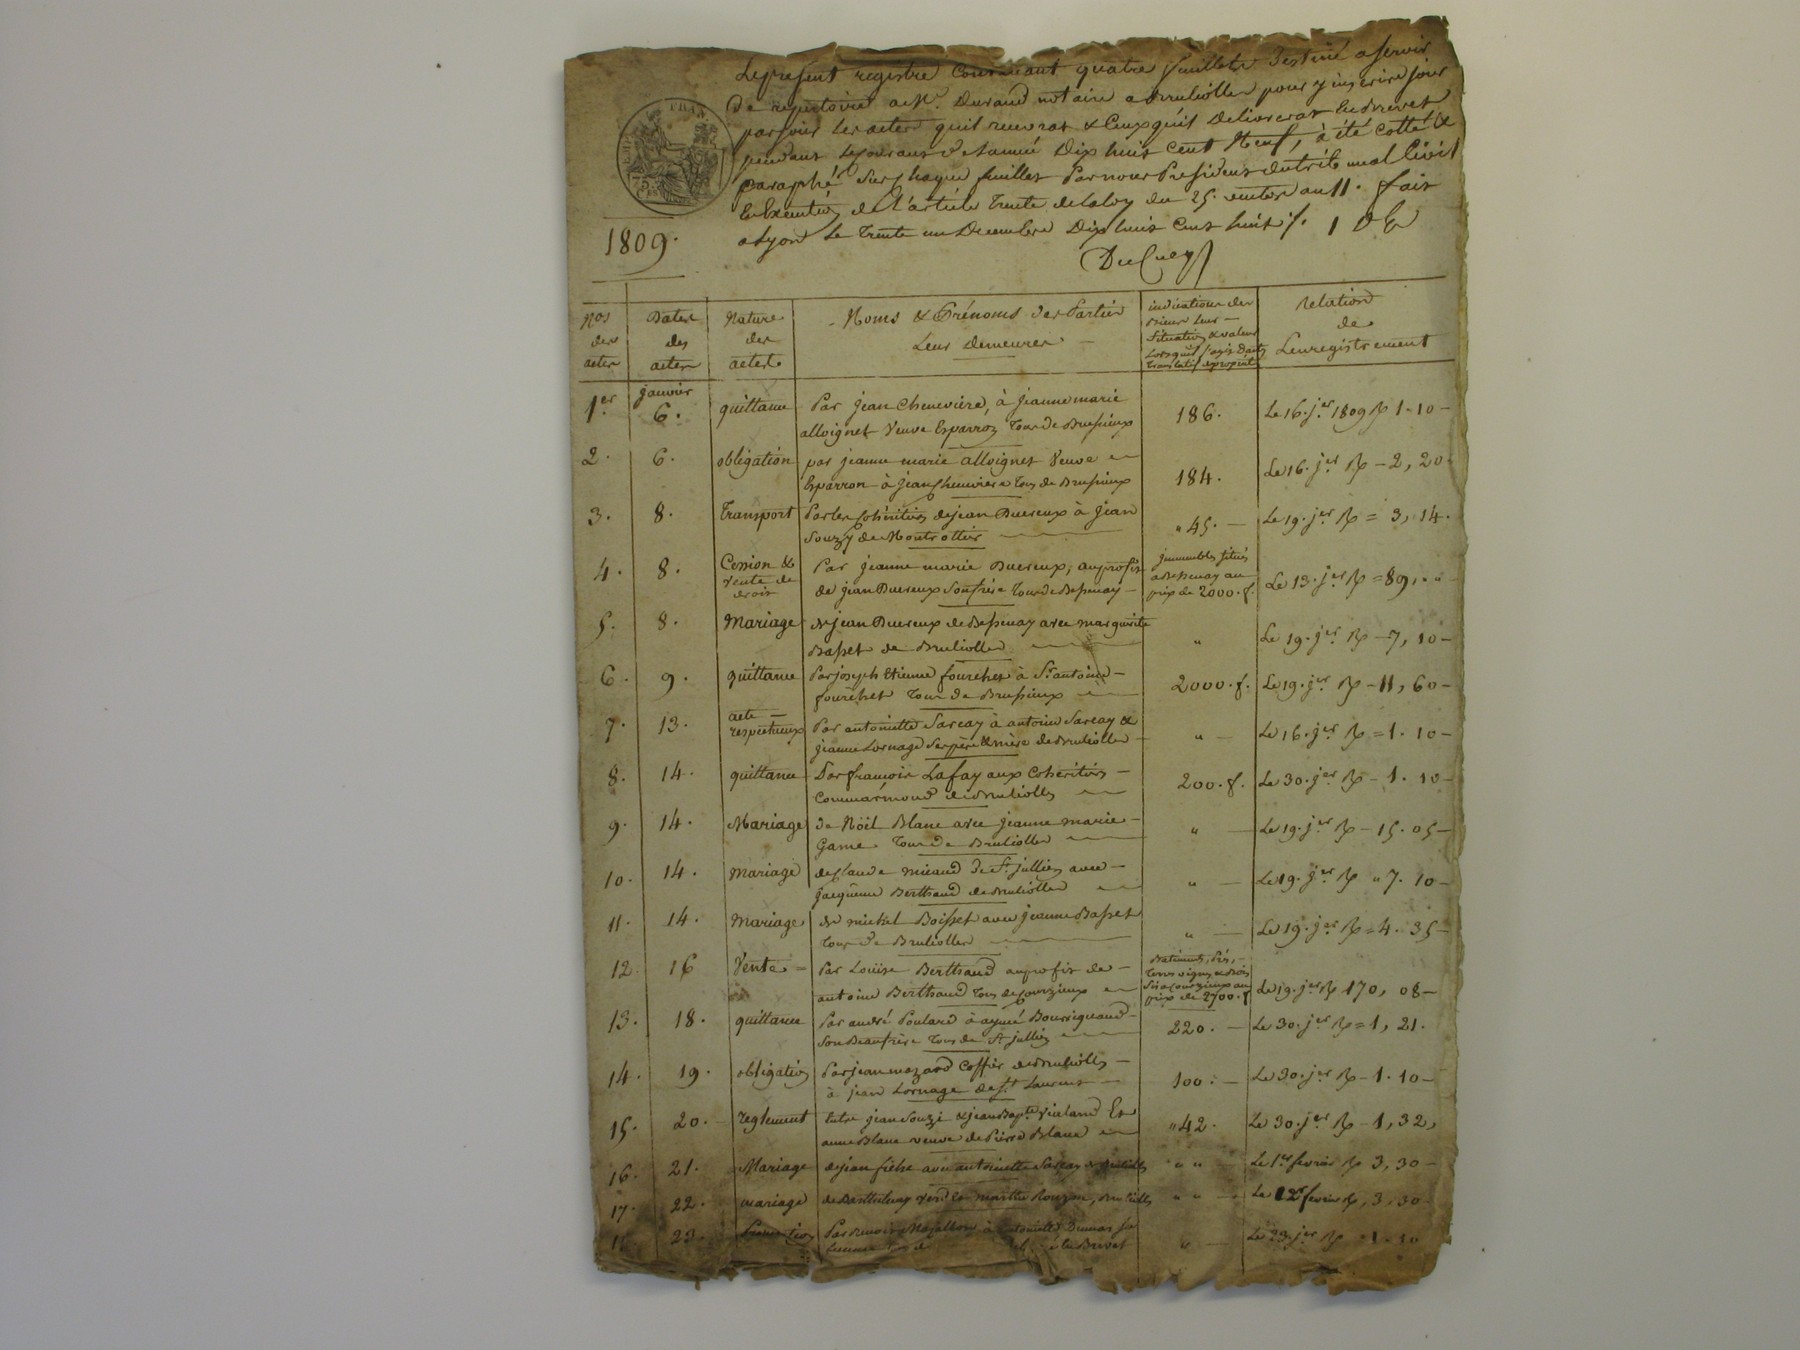 Le présent registre Contenant quatre feuillets destiné a servir
De repertoire a Me. Durand notaire a Brulliolles pour y inscrire jour
par jour les actes quil recevrat & Ceux quil Delivrerat En Brevet
pendant le courant de L'année Dix huit Cent Neuf, à été Cotté &
paraphé Sur chaque feuillet Par nous President du trib unal Civil
En Execution de l'article Trente de la loy du 25. ventose an 11. fait
a Lyon Le Trente un Decembre Dix huit Cent huit
1809.
Nos
des
actes
Dates
des
actes
Nature
des
actes
Noms & Prénoms des Parties
Leurs demeures
indications des
Biens Leur
Situation & valeur
Lorsquil s'agit d'acte
Translatif de propriété
Relation
de
Lenregistrement
1er. janvier 6. quittance Par jean Cheneviere, à jeanne marie
alloignet Veuve Esparron Tous de Brussieux 186. Le 16. jer 1809 R 1-10
2. 6. obligation par jeanne marie alloignet Veuve
Esparron à jean Cheneviere Tous de Brussieux 184. Le 16. jer R 2,20
3. 8. Transport Par les Cohéritiers de jean Ducreux à jean
Souzy de Montrottier 45. Le 19. jer R = 3,14.
4. 8. Cession &
vente de
droit Par jeanne marie Ducreux, au profit
de jean Ducreux Son frère Tous de Bessenay immeubles situés
a Bessenay au
prix de 2000. f. Le 13. jer R = 89, "
5. 8. Mariage de jean Ducreux de Bessenay avec marguerite
Basset de Brulliolles " Le 19. jer R 7,10
6. 9. quittance Par joseph Etienne fourchet à St antoine
fourchet Tous de Brussieux 2000. f. Le 19. jer R 11,60
7. 13. acte
respectueux Par antoinette Sarcay à antoine Sarcay &
jeanne Lornage Ses père & mère de Brulliolles " Le 16. jer R = 1. 10
8. 14. quittance Par françois Lafay aux Cohéritiers
Commarmond de Brulliolles 200. f. Le 30. jer R 1. 10
9. 14. Mariage de Nöel Blanc avec jeanne marie
Game Tous de Brulliolles " Le 19. jer R 15. 05
10. 14. Mariage de Claude micaud de St. jullien avec
jacqueme Berthaud de Brulliolles " Le 19. jer R " 7. 10
11. 14. Mariage de michel Boisset avec jeanne Basset
Tous de Brulliolles " Le 19. jer R = 4. 35
12. 16 Vente = Par Louïse Berthaud au profit de
antoine Berthaud Tous de Courzieux Batiments, Prés,
terres vignes & Bois
Sis a Courzieux au
prix de 2700. f Le 19. jer R 170,08
13. 18. quittance Par andré Poulard à aymé Boursiquaud
Son Beaufrère Tous de St jullien 220. Le 30. jer R = 1,21.
14. 19. obligation Par jean mazard Coffier de Brulliolles
à jean Lornage de St. Laurent 100. Le 30. jer R 1. 10
15. 20. reglement Entre jean Souzi & jean Bapte. Et
anne Blanc veuve de Pierre Blanc " 42. Le 30. jer R 1,32,
16. 21. Mariage de jean fiche avec antoinette Sarcay " " Le 1er fevrier R 3,30
17. 22. mariage de Barthelemy avec marthe " " Le fevrier R, 3,30
23. Par à antoinette
En Brevet " Le 23. jer R 1.10